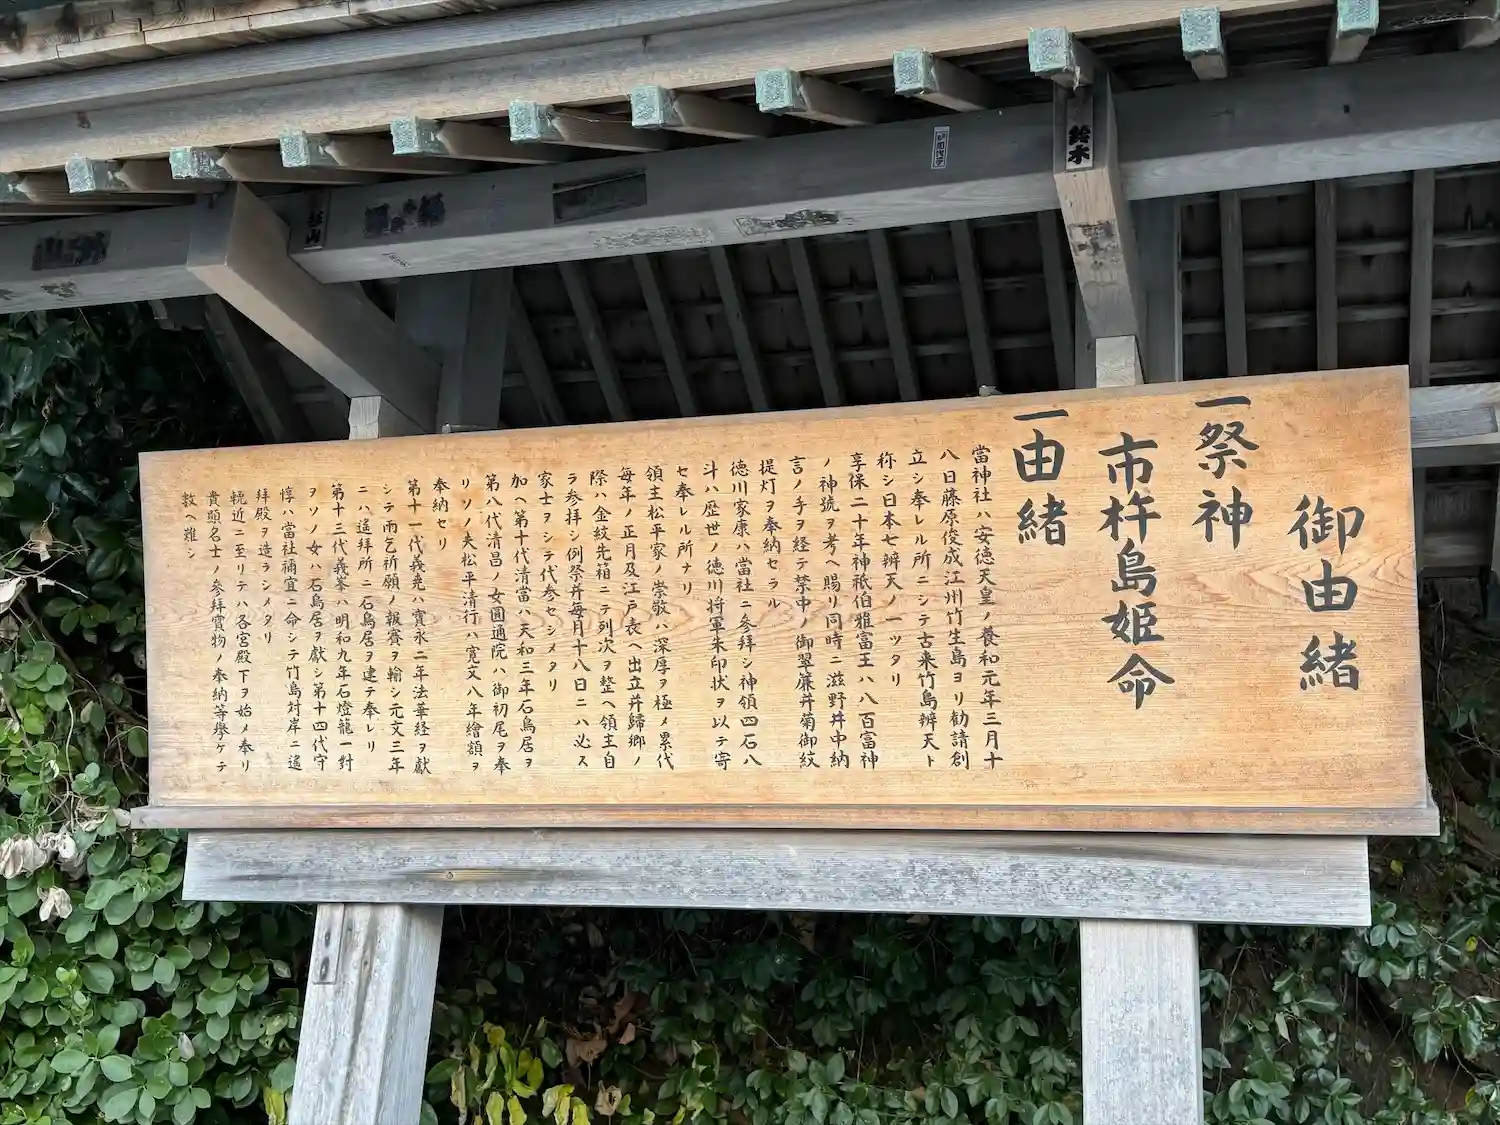 御由緒
一祭神
市杵島姫命
一由緒
當神社ハ安徳天皇ノ養和元年三月十
八日藤原俊成江州竹生島ヨリ勧請創
立シ奉レル所ニシテ古来竹島辨天ト
称シ日本七辨天ノ一ツタリ
享保二十年神祇伯雅富王ハ八百富神
ノ神號ヲ考ヘ賜リ同時ニ滋野井中納
言ノ手ヲ経テ禁中ノ御翠簾并菊御紋
提灯ヲ奉納セラル
徳川家康ハ當社ニ参拝シ神領四石八
斗ハ歴世ノ徳川将軍朱印状ヲ以テ寄
セ奉レル所ナリ
領主松平家ノ崇敬ハ深厚ヲ極メ累代
毎年ノ正月及江戸表ヘ出立并歸郷ノ
際ハ金紋先箱ニテ列次ヲ整ヘ領主自
ラ参拝シ例祭并毎月十八日ニハ必ス
家士ヲシテ代参セシメタリ
加ヘ第十代清當ハ天和三年石鳥居ヲ
第八代清昌ノ女圓通院ハ御初尾ヲ奉
リソノ夫松平清行ハ寛文八年繪額ヲ
奉納セリ
第十一代義堯ハ寳永二年法華経ヲ献
シテ雨乞祈願ノ報賽ヲ輸シ元文三年
ニハ遙拝所ニ石鳥居ヲ建テ奉レリ
第十三代義峯ハ明和九年石燈籠一對
ヲソノ女ハ石鳥居ヲ献シ第十四代守
惇ハ當社禰宜ニ命シテ竹島対岸ニ遙
拝殿ヲ造ラシメタリ
輓近ニ至リテハ各宮殿下ヲ始メ奉リ
貴顕名士ノ参拝寳物ノ奉納等擧ケテ
数ヘ難シ
鈴木